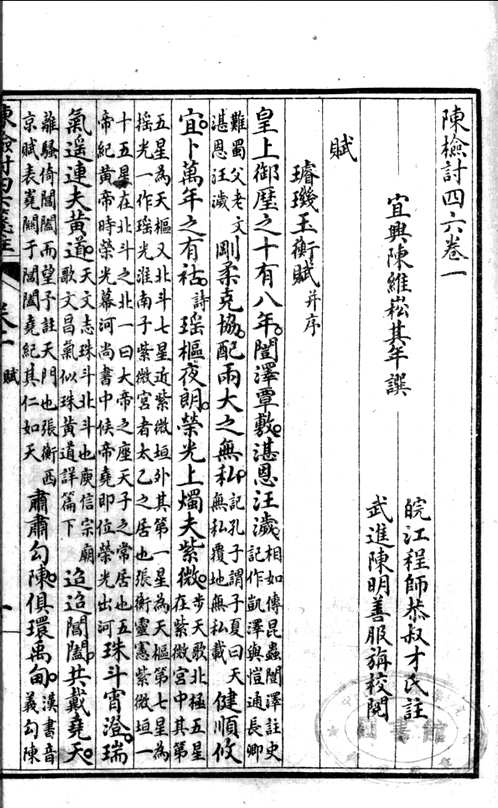 陳檢討四六卷一
宜興陳維崧其年譔
皖江程師恭叔才氏註
武進陳明善服旃校閱
賦
璿璣玉衡賦并序
皇上御歷之十有八年闓澤覃敷湛恩汪濊相如傳昆蟲闓澤註史
記作凱澤與愷通長卿
難蜀父老文
湛恩汪濊剛柔克協配兩大之無私記孔子謂子夏曰天
無私覆地無私載健順攸
宜卜萬年之有祜詩瑶樞夜朗榮光上燭夫紫微步天歌北極五星
在紫微宮中其第
五星為天樞又北斗七星近紫微垣外其第一星為天樞第七星為
摇光一作瑶光淮南子紫微宮者太乙之居也張衡靈憲紫微垣一
十五星在北斗之北一曰大帝之座天子之常居也五
帝紀黃帝時榮光幕河尚書中候帝堯即位榮光出河珠斗宵澄瑞
氣遥連夫黃道天文志珠斗北斗也庾信宗廟
歌文昌氣似珠黃道詳篇下迢迢閶闔共戴堯天
離騷倚閶闔而望予註天門也張衡西
京賦表嶤闕于閶闔堯紀其仁如天肅肅勾陳俱環禹甸漢書音
義勾陳
陳檢討四六卷一 賦 一